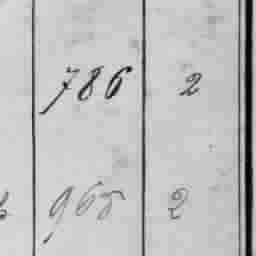 786 2
965 2